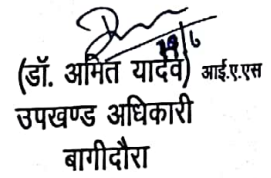 19/6
(डॉ. अमित यादव) आई.ए.एस
उपखण्ड अधिकारी
बागीदौरा